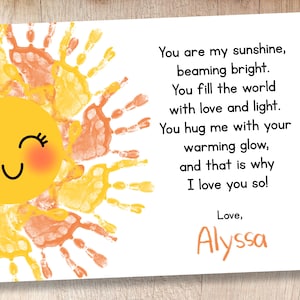 You are my sunshine,
beaming bright.
You fill the world
with love and light.
You hug me with your
warming glow,
and that is why
I love you so!
Love,
Alyssa